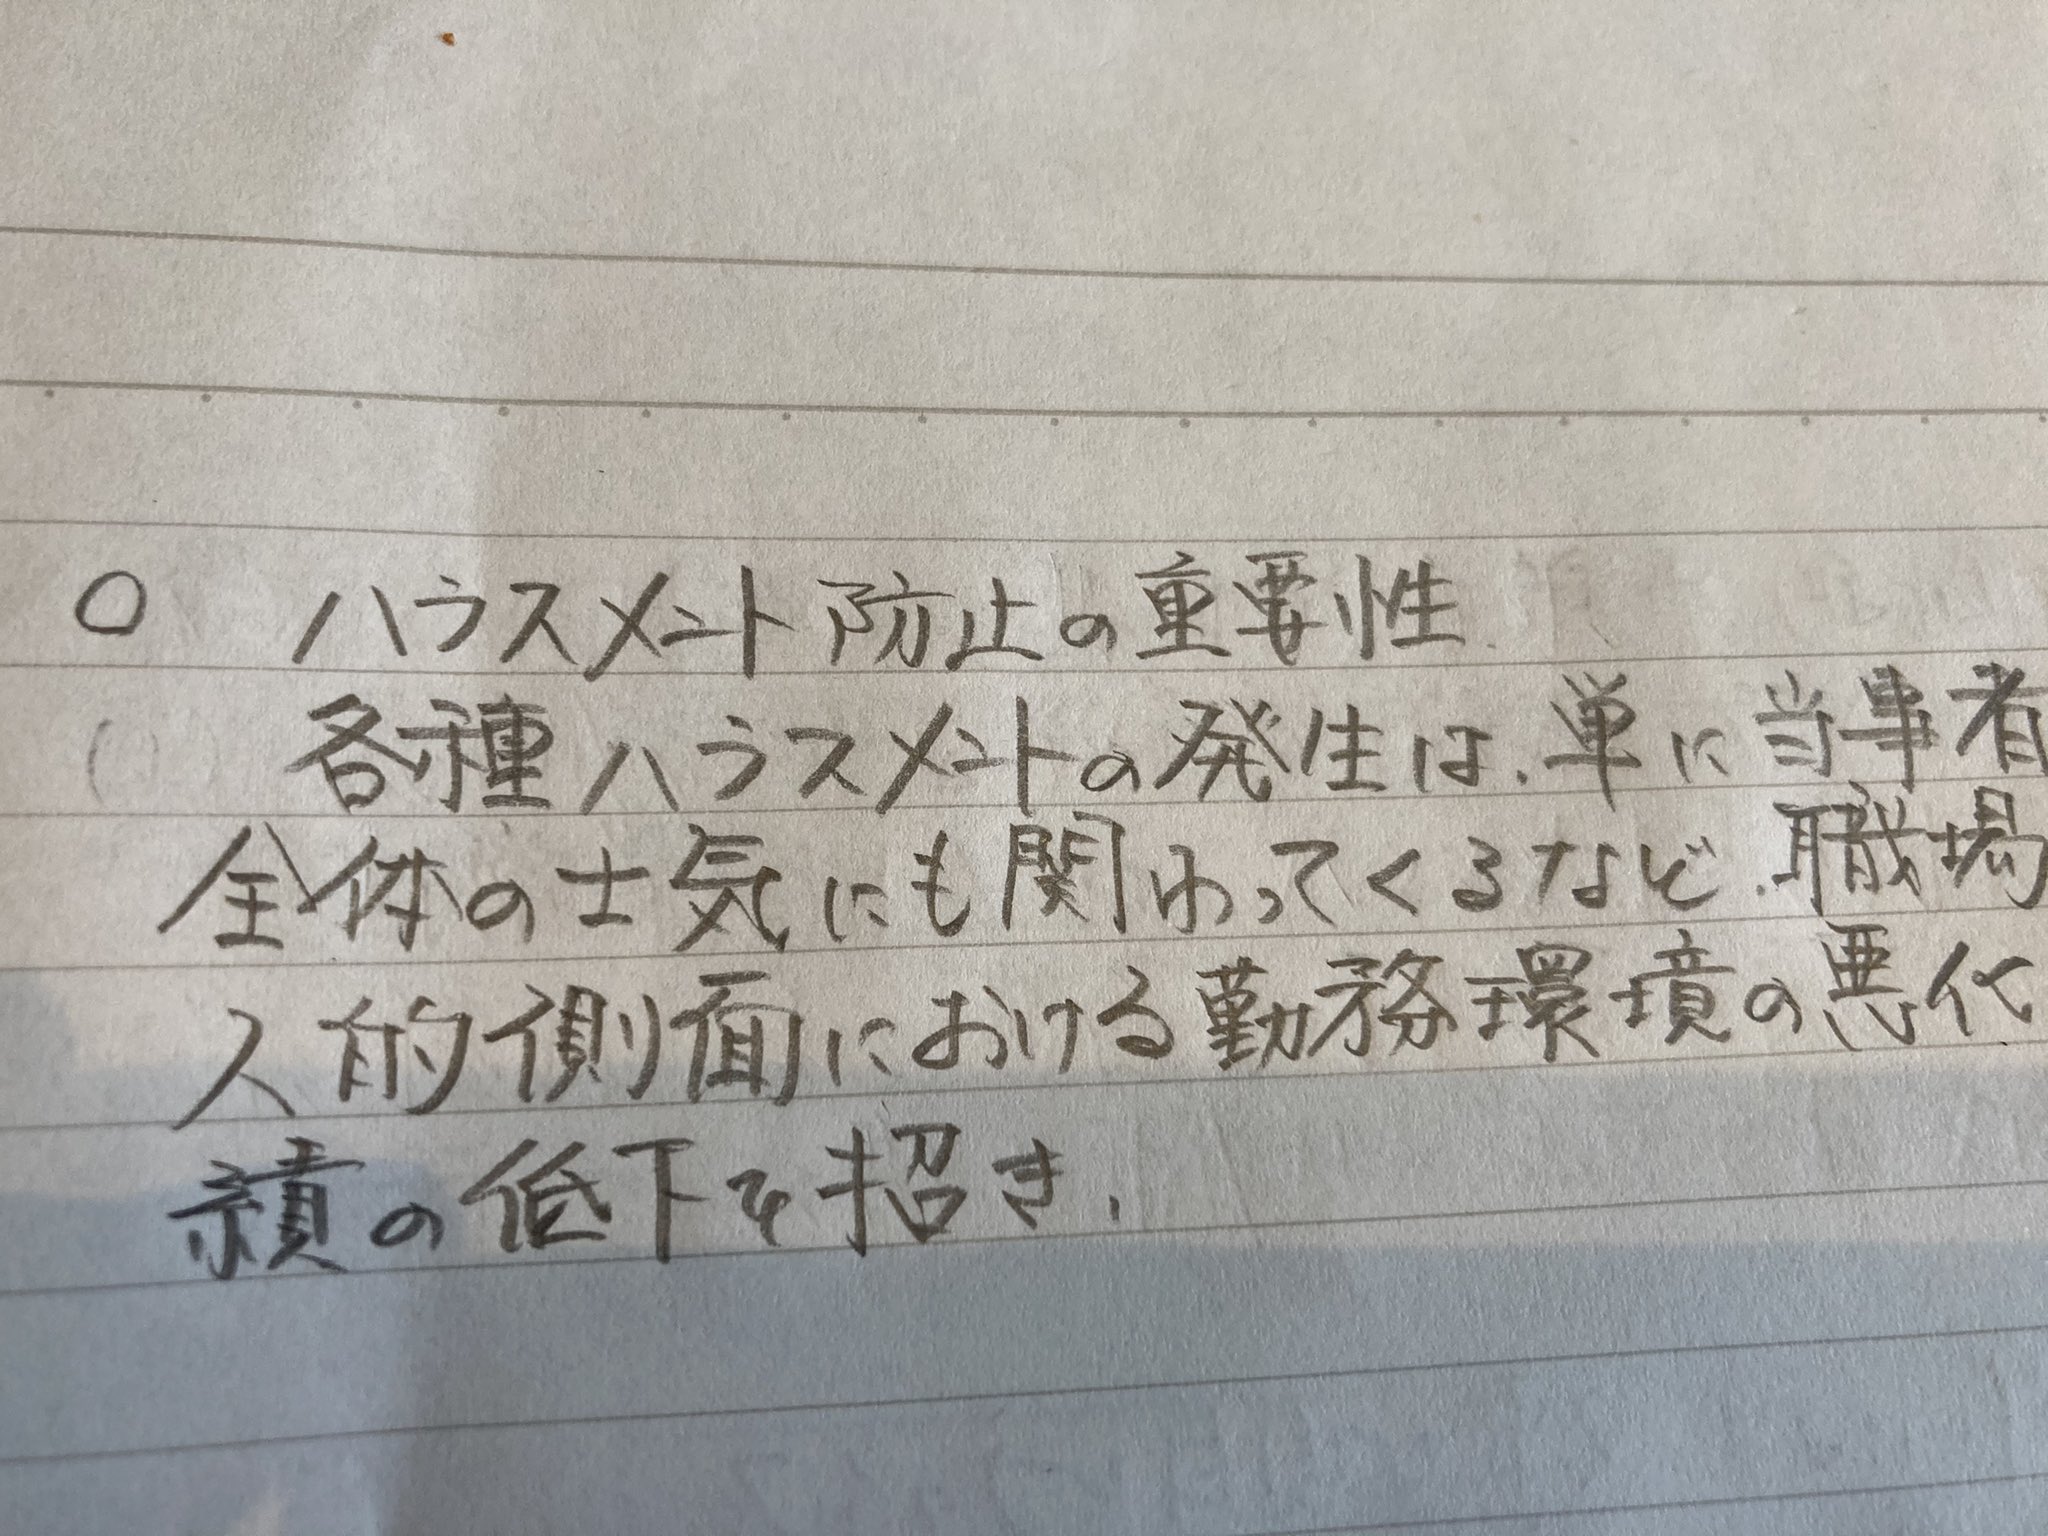 ○ ハラスメント防止の重要性
各種ハラスメントの発生は、単に当事者
全体の士気にも関わってくるなど、職場
人的側面における勤務環境の悪化
績の低下を招き、